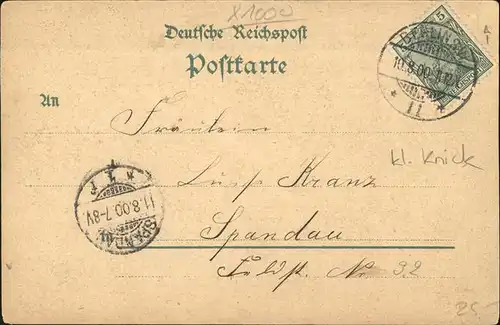 X1000
Deutsche Reichspost
Postkarte
5
BERLIN
10.8.00.
11
An
Fräulein
Luise Kranz
Spandau
Feldst. No 32
kl. Knick
SPANDAU
11.8.00.7-8V.
1